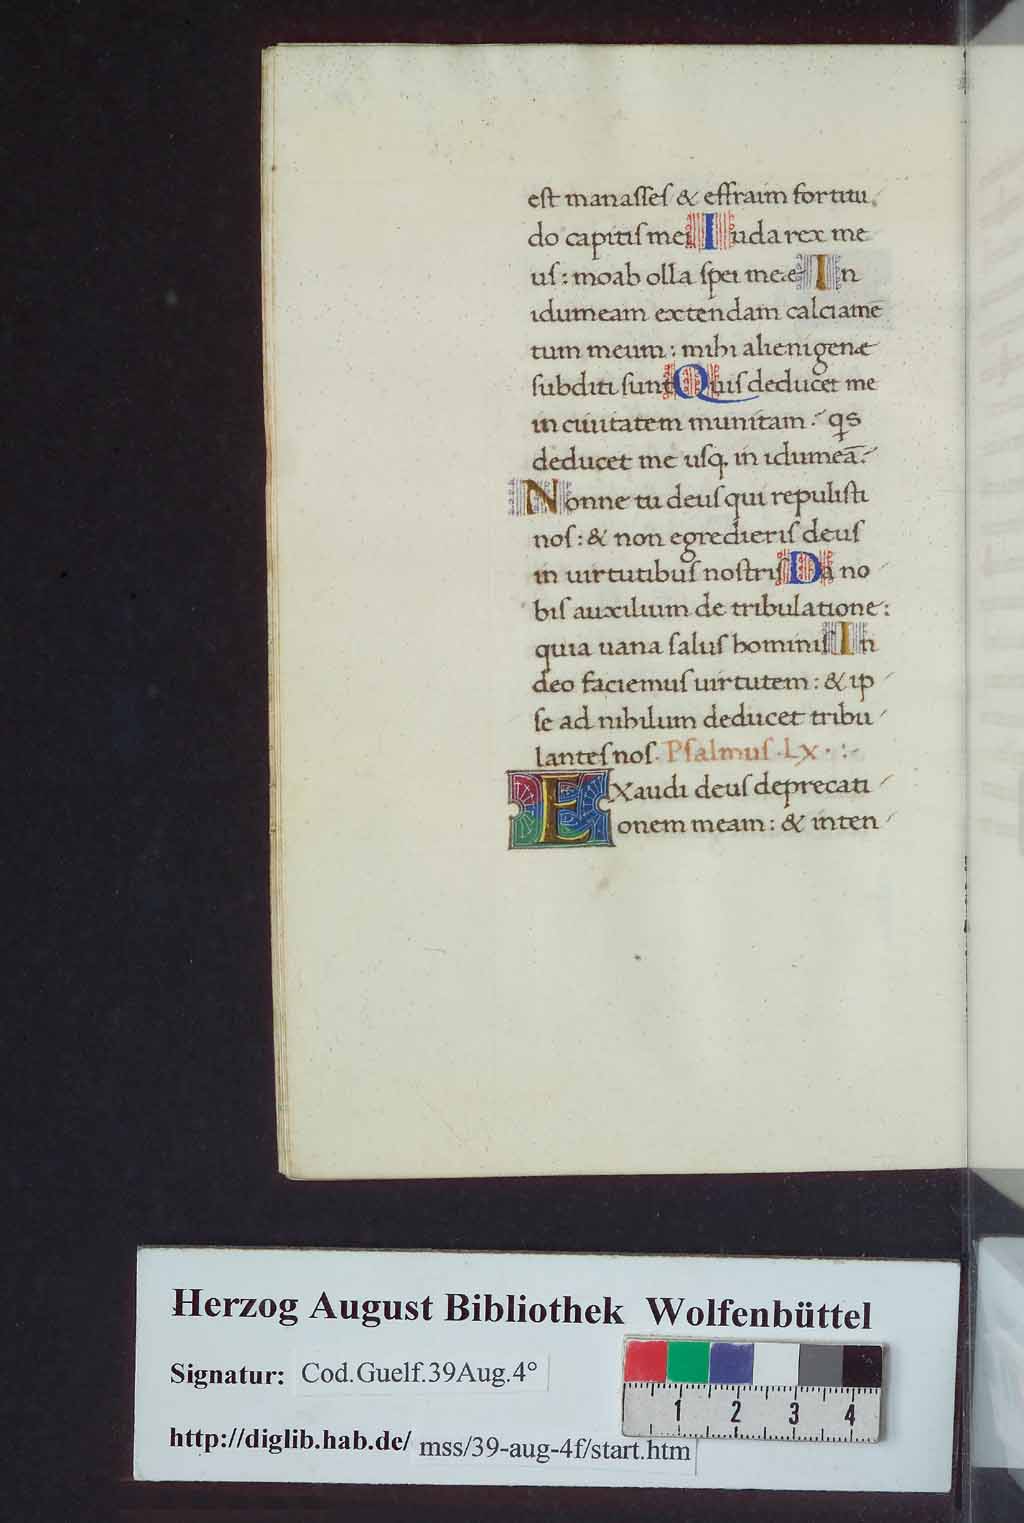 est manasseſ & effraim fortitu
do capitiſ mei Iuda rex me
uſ: moab olla ſpei meæ In
idumeam extendam calciamē
tum meum: mihi alienigenæ
ſubditi ſunt Quiſ deducet me
in ciuitatem munitam: qs
deducet me uſq. in idumeā:
Nonne tu deuſ qui repuliſti
noſ: & non egredieriſ deuſ
in uirtutibuſ noſtriſ Da no
biſ auxilium de tribulatione:
quia uana ſaluſ hominiſ In
deo faciemuſ uirtutem: & ip
ſe ad nihilum deducet tribu
lanteſ noſ. Pſalmuſ .LX.
EXaudi deuſ deprecati
onem meam: & inten
Herzog August Bibliothek Wolfenbüttel
Signatur: Cod.Guelf.39Aug.4°
http://diglib.hab.de/ mss/39-aug-4f/start.htm
1 2 3 4